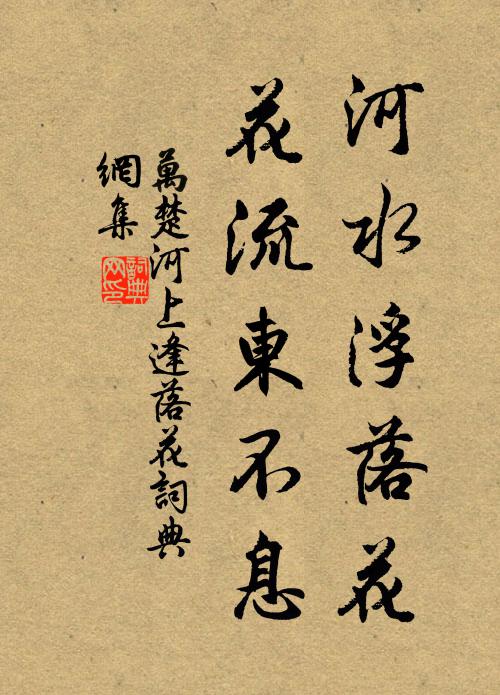 河水浮落花
花流東不息
萬楚河上逢落花詞典
網集
詞典
网印